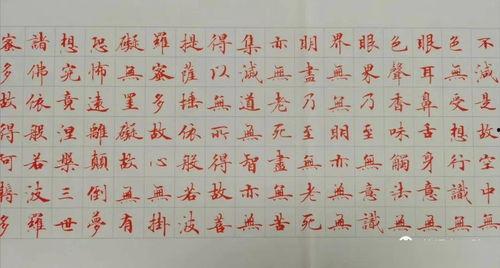 不減是故空中無
色無受想行識無
眼耳鼻舌身意無
色聲香味觸法無
眼界乃至無意識
界無無明亦無無
明盡乃至無老死
亦無老死盡無苦
集滅道無智亦無
得以無所得故菩
提薩埵依般若波
羅蜜多故心無掛
礙無罣礙故無有
恐怖遠離顛倒夢
想究竟涅槃三世
諸佛依般若波羅
蜜多故得阿耨多